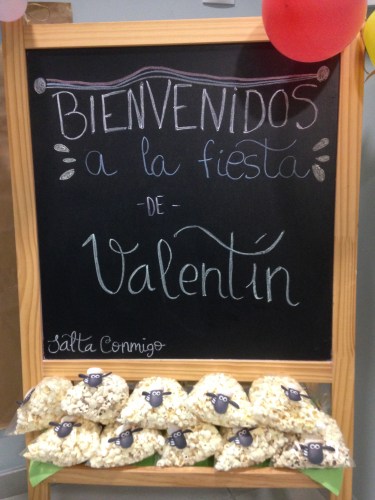 BIENVENIDOS
a la fiesta
-DE-
Valentín
Salta Conmigo